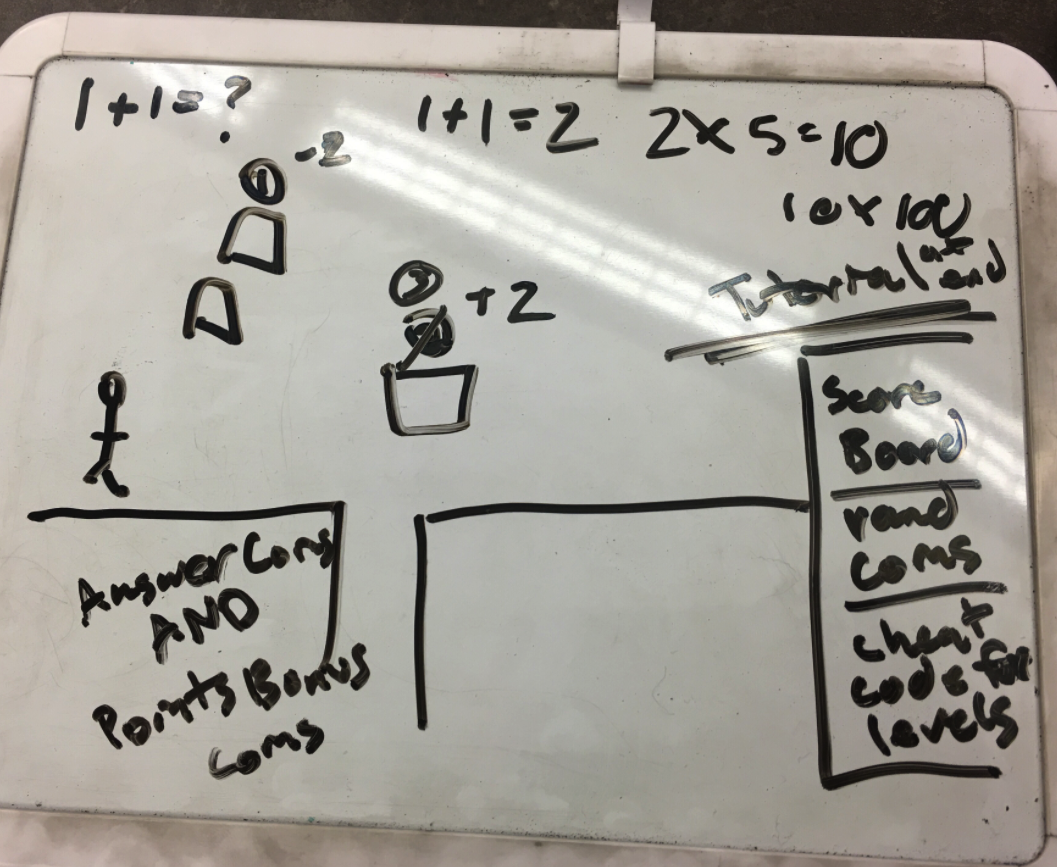 1+1=?
1+1=2 2x5=10
-2
10x100
Tutorial at end
+2
Score
Board
rand
coins
cheat
code for
levels
Answer Coins
AND
Points Bonus
coins